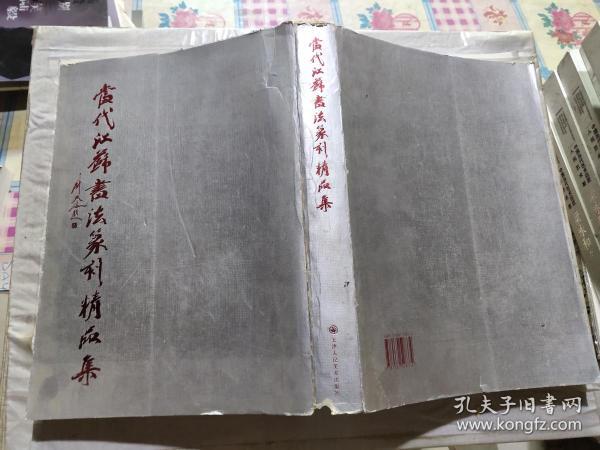 當代江蘇書法篆刻精品集
當代江蘇書法篆刻精品集
天津人民美術出版社
孔夫子旧书网
www.kongfz.com